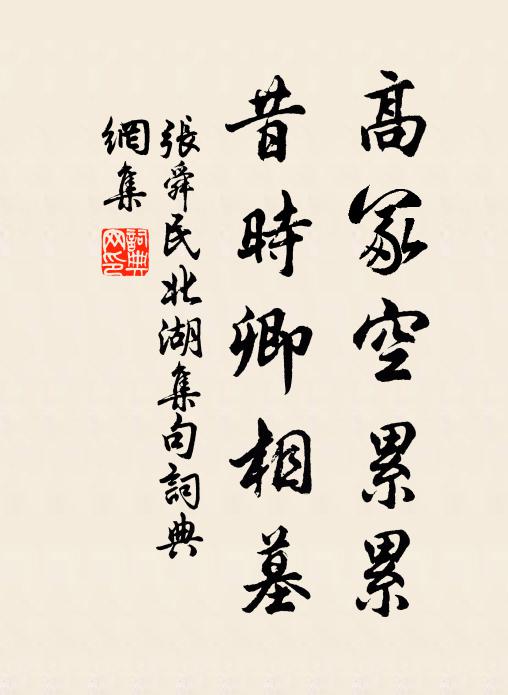 高冢空累累
昔時卿相墓
張舜民北湖集句詞典
網集
詞典網印